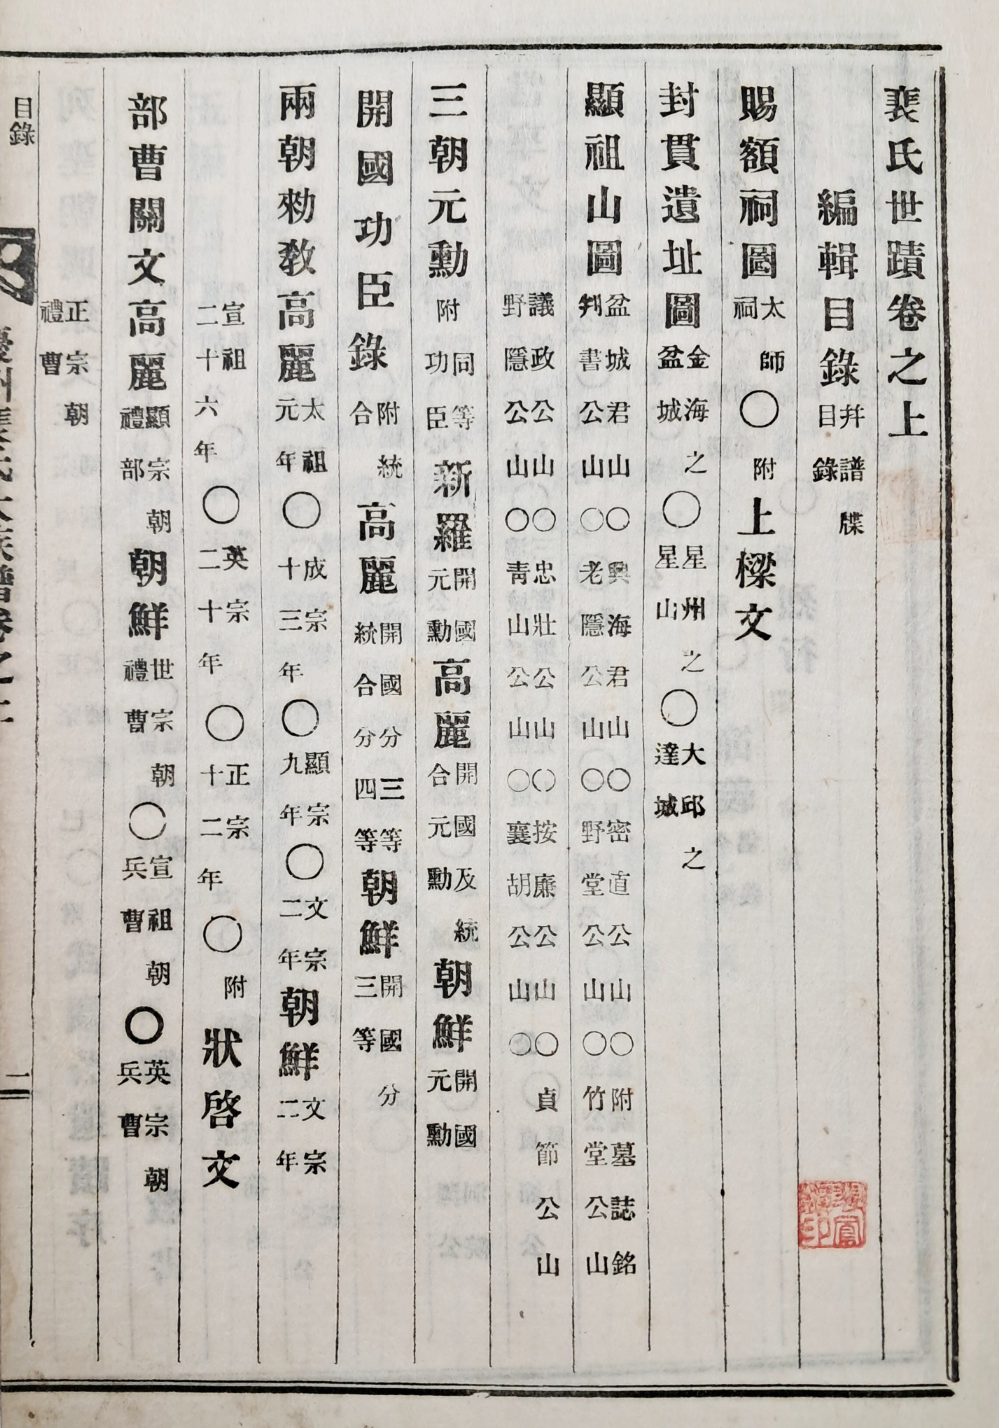 裵氏世蹟卷之上
編輯目錄幷譜牒目錄
賜額祠圖太師祠○附上樑文
封貫遺址圖金海之盆城○星州之星山○大邱之達城
顯祖山圖盆城君山○興海君山○密直公山○附墓誌銘
判書公山○老隱公山○野堂公山○竹堂公山
議政公山○忠壯公山○按廉公山○貞節公山
野隱公山○靑山公山○襄胡公山○
三朝元勳附同等功臣新羅開國元勳高麗開國及統合元勳朝鮮開國元勳
開國功臣錄附統合高麗開國分三等統合分四等朝鮮開國分三等
兩朝勑敎高麗太祖元年○成宗十三年○顯宗九年○文宗二年朝鮮文宗二年
宣祖二十六年○英宗二十年○正宗十二年○附狀啓文
部曹關文高麗顯宗朝禮部朝鮮世宗朝禮曹○宣祖朝兵曹○英宗朝兵曹
正宗朝禮曹
目錄
一